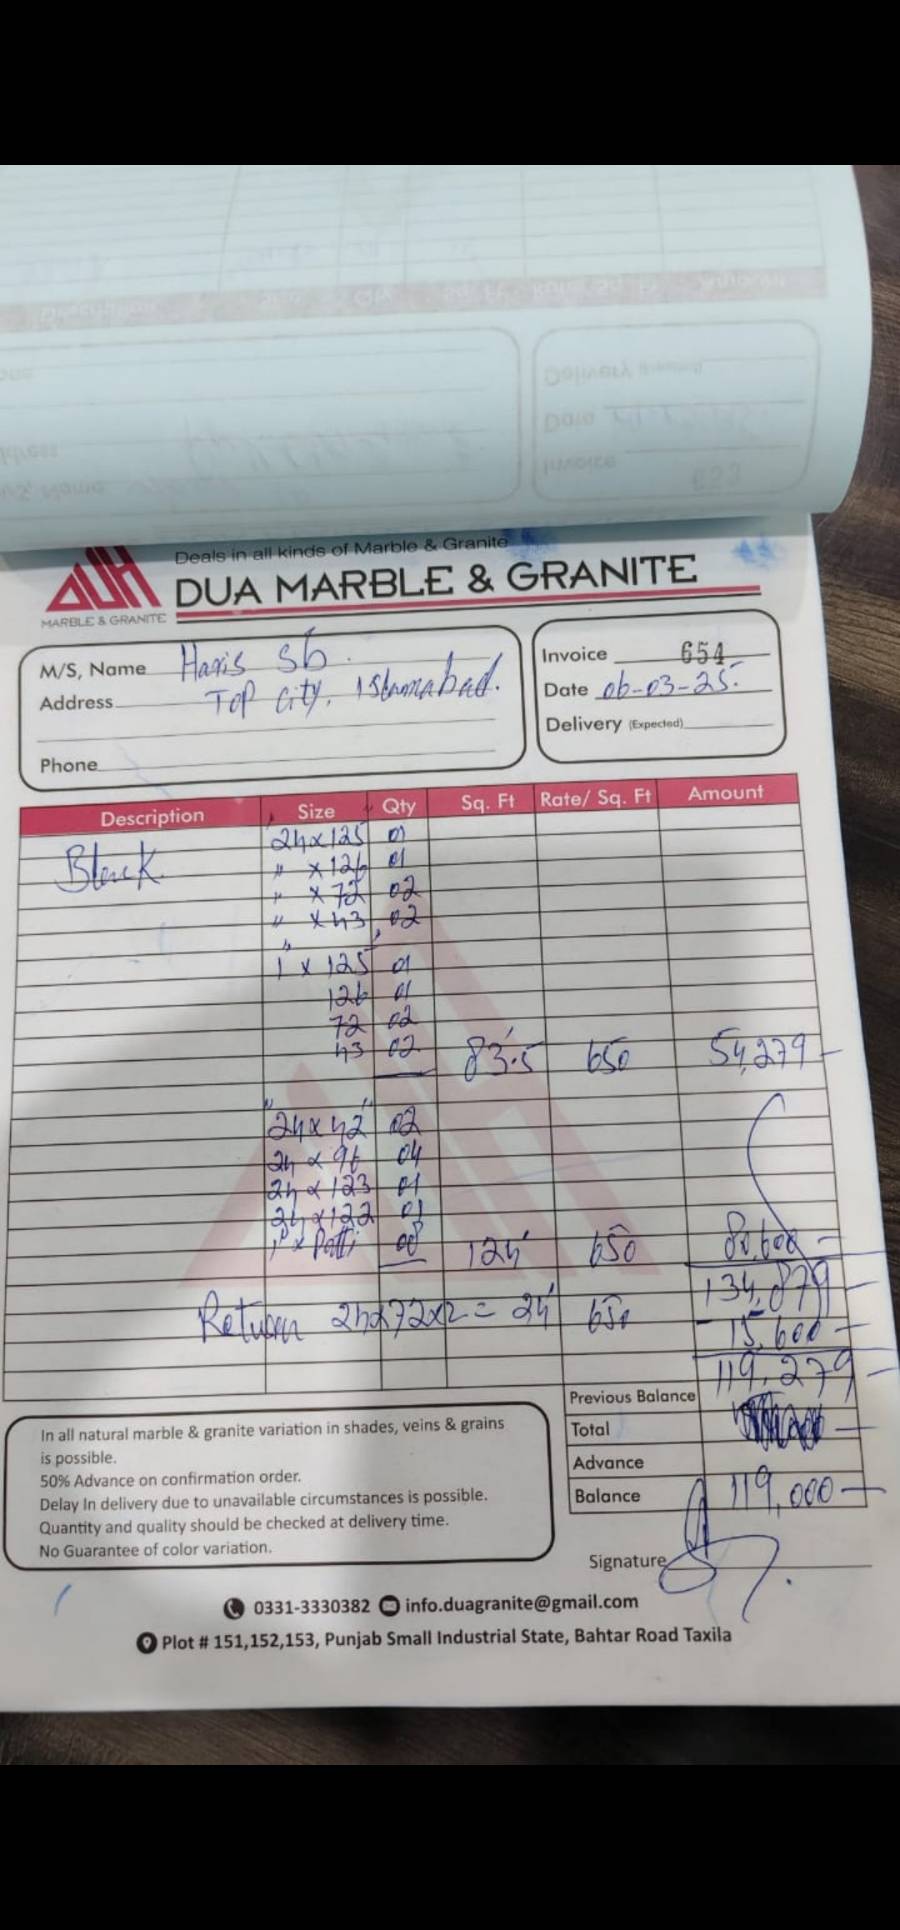 Deals in all kinds of Marble & Granite
DUA MARBLE & GRANITE
MARBLE & GRANITE
M/S, Name Haris Sb.
Address Top City, Islamabad.
Phone
Invoice 654
Date 06-03-25.
Delivery (Expected)
Description Size Qty Sq. Ft Rate/ Sq. Ft Amount
Black 24x125 01
" x126 01
" x72 02
" x43 02
1" x 125 01
126 01
72 02
43 02 83.5' 650 54,279
24x42 02
24x96 04
24x123 01
24x122 01
1" x Patti 08 124' 650 80,600
134,879
Return 24x72x2 = 24' 650 - 15,600
119,279
Previous Balance
Total
Advance
Balance 119,000
In all natural marble & granite variation in shades, veins & grains
is possible.
50% Advance on confirmation order.
Delay In delivery due to unavailable circumstances is possible.
Quantity and quality should be checked at delivery time.
No Guarantee of color variation.
Signature
0331-3330382 info.duagranite@gmail.com
Plot # 151,152,153, Punjab Small Industrial State, Bahtar Road Taxila